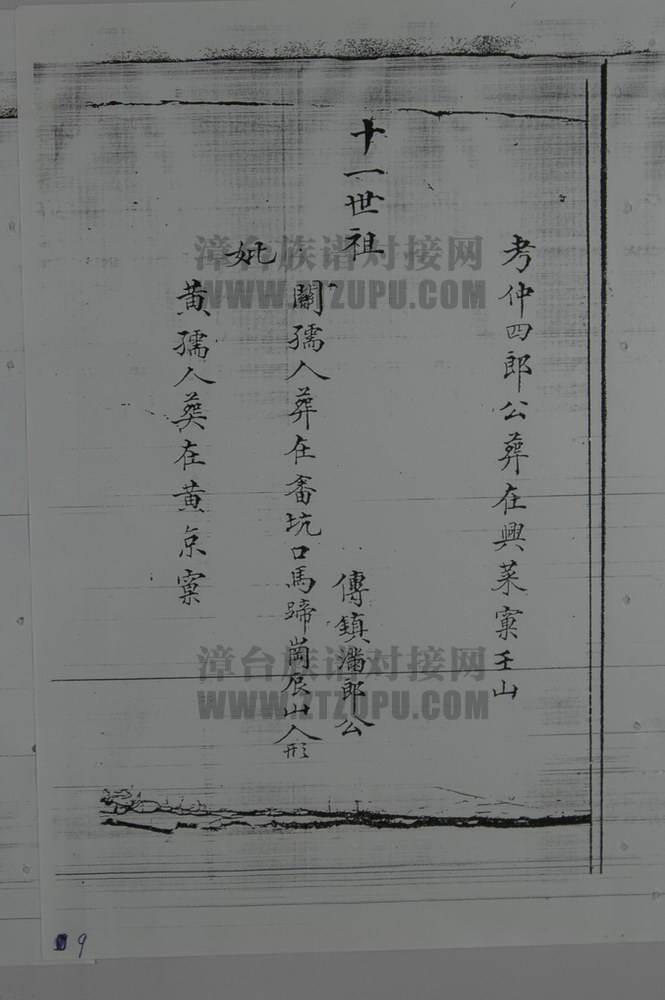 考仲四郎公葬在興菜窠壬山
十一世祖
傳鎮滿郎公
妣
關孺人葬在畬坑口馬蹄崗辰山人形
黃孺人葬在黃京窠
漳台族谱对接网
WWW.ZTZUPU.COM
漳台族谱对接网
WWW.ZTZUPU.COM
9